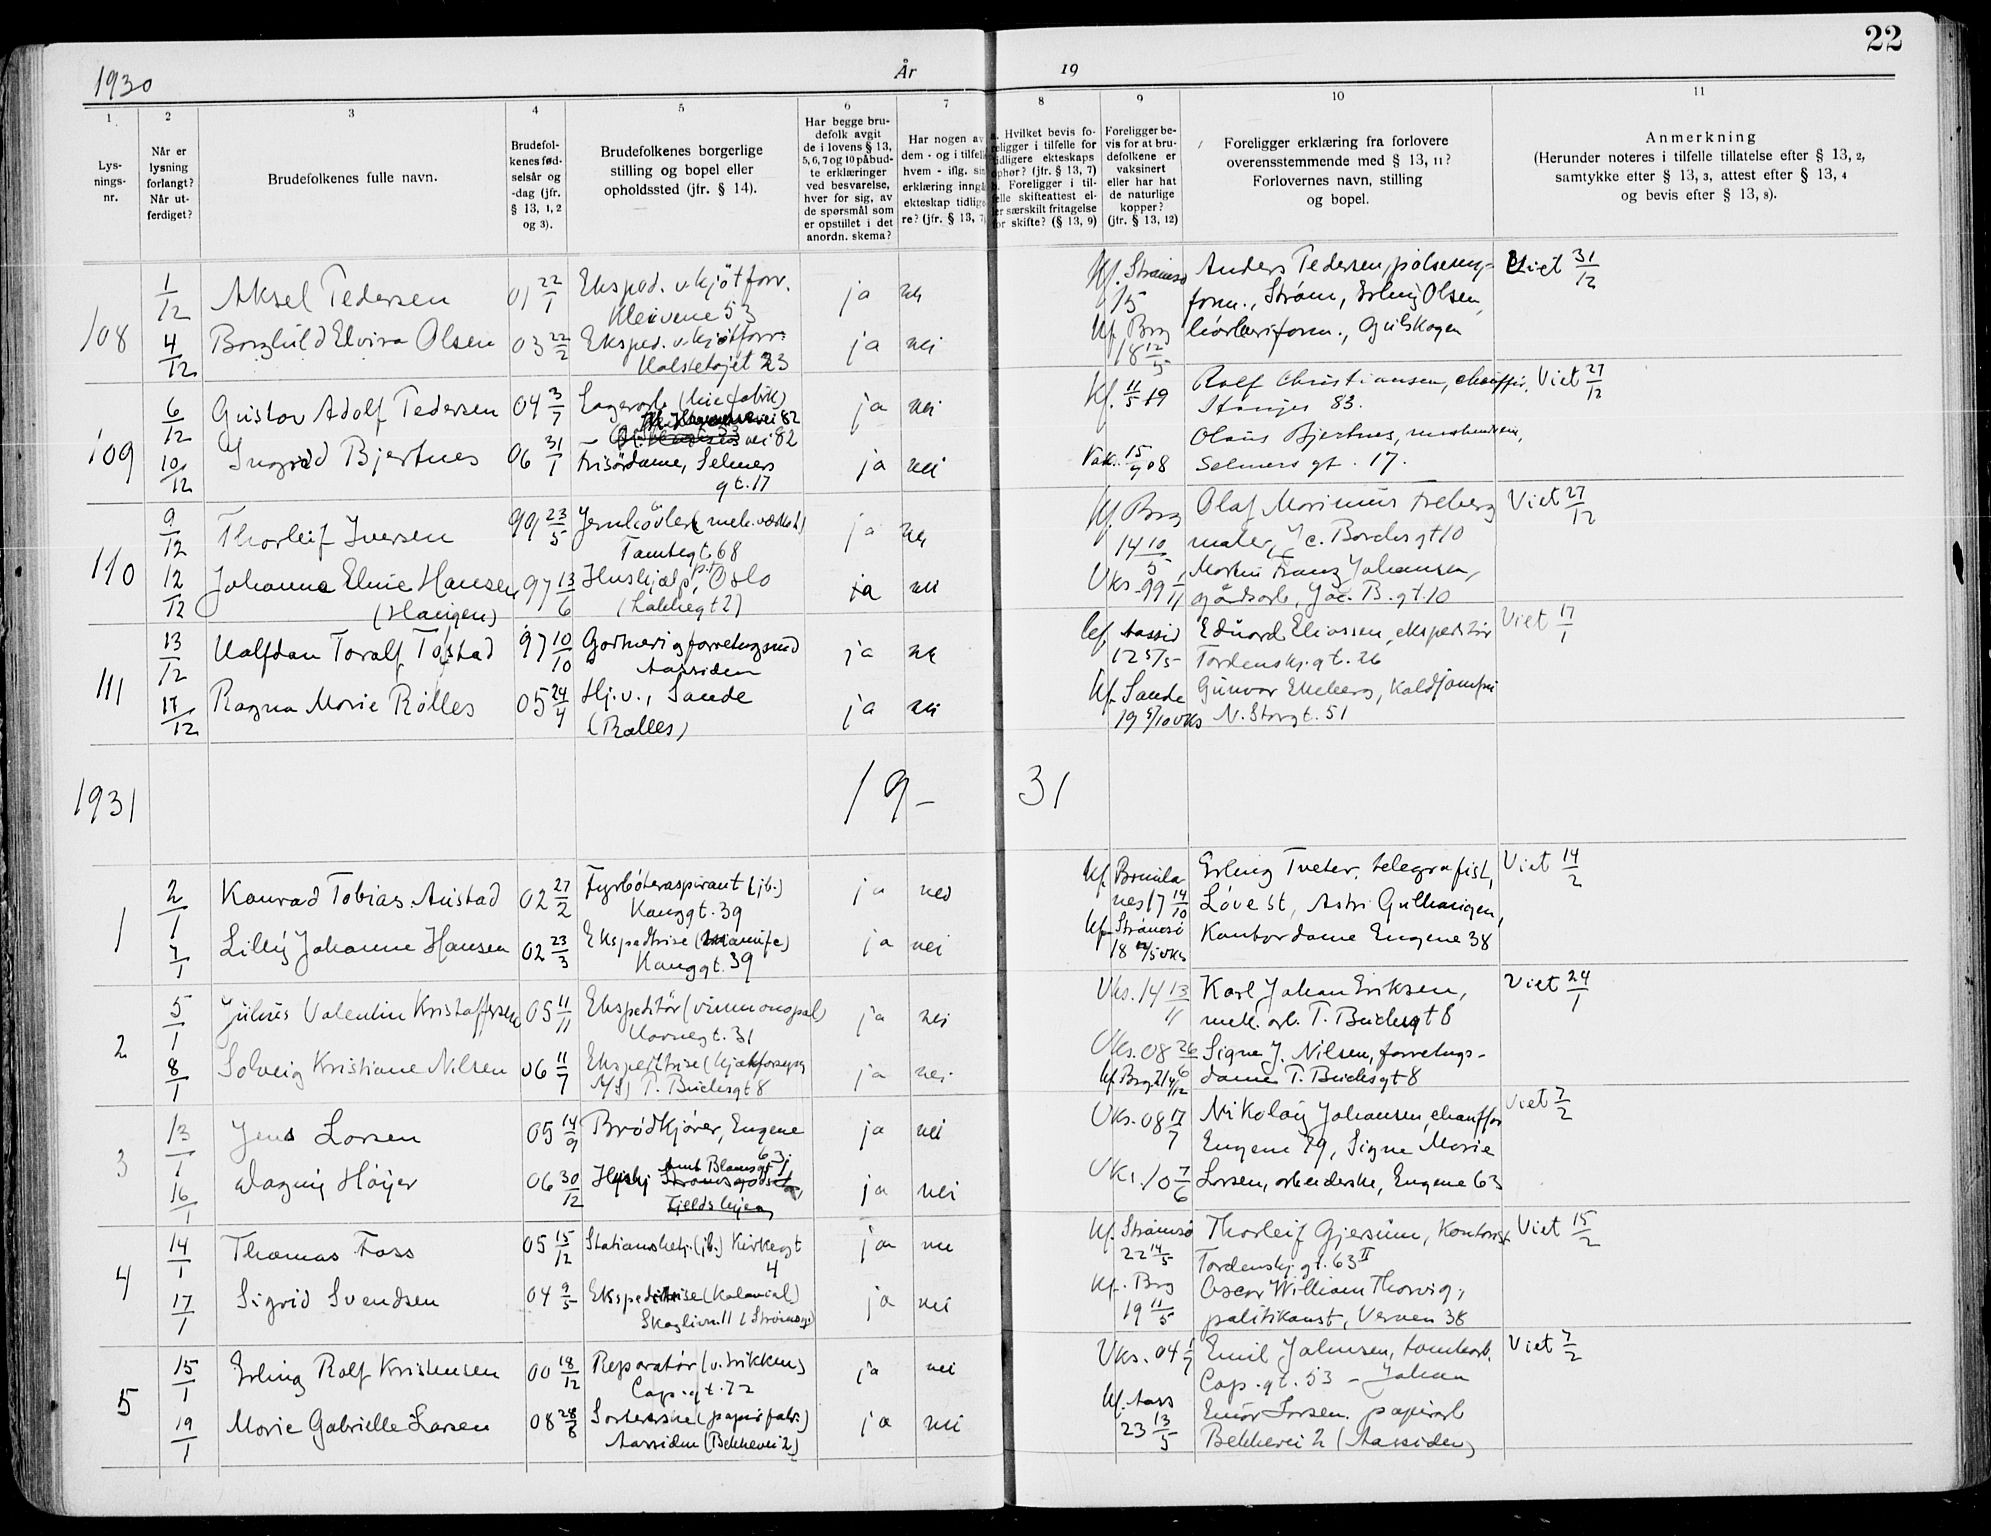 22
1930
År
19
1
2
3
4
5
6
7
8
9
10
11
Lys-
nings-
nr.
Når er
lysning
forlangt?
Når ut-
ferdiget?
Brudefolkenes fulle navn.
Brudefol-
kenes fød-
selsår og
-dag (jfr.
§ 13, 1, 2
og 3).
Brudefolkenes borgerlige
stilling og bopel eller
opholdssted (jfr. § 14).
Har begge bru-
defolk avgit
de i lovens § 13,
5, 6, 7 og 10 påbud-
te erklæringer
ved besvarelse,
hver for sig, av
de spørsmål som
er opstillet i det
anordn. skema?
Har nogen av
dem - og i tilfelle
hvem - iflg. sin
erklæring inngå
ekteskap tidlige
re? (jfr. § 13, 7
a. Hvilket bevis fo-
religger i tilfelle for
tidligere ekteskaps
ophør? (jfr. § 13, 7)
b. Foreligger i til-
felle skifteattest el-
ler særskilt fritagelse
for skifte? (§ 13, 9)
Foreligger be-
vis for at bru-
defolkene er
vaksinert
eller har hat
de naturlige
kopper?
(jfr. § 13, 12)
Foreligger erklæring fra forlovere
overensstemmende med § 13, 11?
Forlovernes navn, stilling
og bopel.
Anmerkning
(Herunder noteres i tilfelle tillatelse efter § 13, 2,
samtykke etter § 13, 3, attest efter § 13, 4
og bevis efter § 13, 8).
108
1/12
Aksel Pedersen
01 22/1
Eksped. v. kjötforr.
Kleivene 53
ja
nei
Kf. Strømsø
15
Anders Pedersen, pølsemg-
form., Strøm, Erling Olsen,
Viet 31/12
4/12
Borghild Elvira Olsen
03 22/2
Eksped. v. kjötforr.
23
ja
nei
Kf. Brg
18 12/5
Gulskogen
109
6/12
Gustav Adolf Pedersen
04 3/7
Lagerarb.
vei 82
ja
nei
Kf. 11/5 19
Rolf Christiansen, chauffør,
83.
Viet 27/12
10/12
Ingrid Bjertnes
06 31/1
frisørdame, Selmers
gt. 17
ja
nei
Vak. 15/7 08
Olaus Bjertnes,
Selmers gt. 17.
110
9/12
Thorleif Iversen
99 23/5
Jernhøvler (mek. værksted)
Tomtegt. 68
ja
nei
Kf. Brg
14 10/5
Olaf Marinius Freberg
maler, Jac. Borchs gt 10
Viet 27/12
12/12
Johanna Elnie Hansen
(Haugen)
97 13/6
Hushjælp, p.t. Oslo
(Lakkegt 2)
ja
nei
Vks. 99 1/11
Martin Franz Johansen,
gårdsarb., Jac. B. gt. 10
111
13/12
Halfdan Toralf Tostad
97 10/10
Gartneri og forretningsmd
Aassiden
ja
nei
Kf. Aassid
12 5/5
Edvard Eliassen, ekspeditør
Tordenskj. gt. 26
Viet 17/1
17/12
Ragna Marie Rølles
05 24/4
Hj. v., Sande
(Rølles)
ja
nei
Kf. Sande
19 5/10 vks
Gunvor Ekeberg, Koldjomfru
N. Storgt. 51
1931
19-
31
1
2/1
Konrad Tobias Austad
02 27/2
Fyrbøteraspirant (jb.)
Konggt. 39
ja
nei
Kf. Brunla-
nes 17 14/10
Erling Tveter, telegrafist,
Løve st, Astri Gulhaugen,
Viet 14/2
7/1
Lilly Johanne Hansen
02 23/3
Ekspeditrise (manufa)
Konggt. 39
ja
nei
Kf. Strømsø
18 12/5 vks
Kontordame Engene 38
2
5/1
Julius Valentin Kristoffersen
05 11/11
Ekspeditør (vinmonopol)
Havnegt. 31
ja
nei
Vks. 14 13/11
Karl Johan Eriksen,
mek. arb. T. Buchs gt 8
Viet 24/1
8/1
Solveig Kristiane Nilsen
06 11/7
Ekspeditrise
A/S) T. Buchsgt 8
ja
nei
Vks. 08 26/6
Kf. Brg 21 4/12
Signe J. Nilsen, forretnings-
dame T. Buchsgt 8
3
13/1
Jens Larsen
05 14/9
Brødkjører, Engene
63
ja
nei
Vks. 08 17/7
Nikolay Johansen, chauffør
Engene 79, Signe Marie
Viet 7/2
16/1
Dagny Høyer
06 30/12
Hushj
ja
nei
Vks. 10 7/6
Larsen, arbeiderske, Engene 63
4
14/1
Thomas Foss
05 15/12
Stationsbetj. (jb.) Kirkegt
4
ja
nei
Kf. Strømsø
22 14/5
Thorleif Gjersum, Kontorist
Tordenskj. gt. 63 II
Viet 15/2
17/1
Sigrid Svendsen
04 9/5
Ekspeditrise (Kolonial)
Skogliv. 11 (Strømsgo)
ja
nei
Kf. Brg
19 11/5
Oscar William Thorvig,
politikonst, Vernen 38
5
15/1
Erling Rolf Kristensen
00 18/12
Reparatør (v. trikken)
Cap. gt. 72
ja
nei
Vks. 04 1/7
Emil Johnsen, tomtearb.
Cap. gt. 53 - Johan
Viet 7/2
19/1
Marie Gabrielle Larsen
08 28/8
Sorterske (papirfabr.)
Aassiden (Bekkevei 2)
ja
nei
Kf. Aass
23 13/5
Einar Larsen. papirarb
Bekkevei 2 (Aassiden)